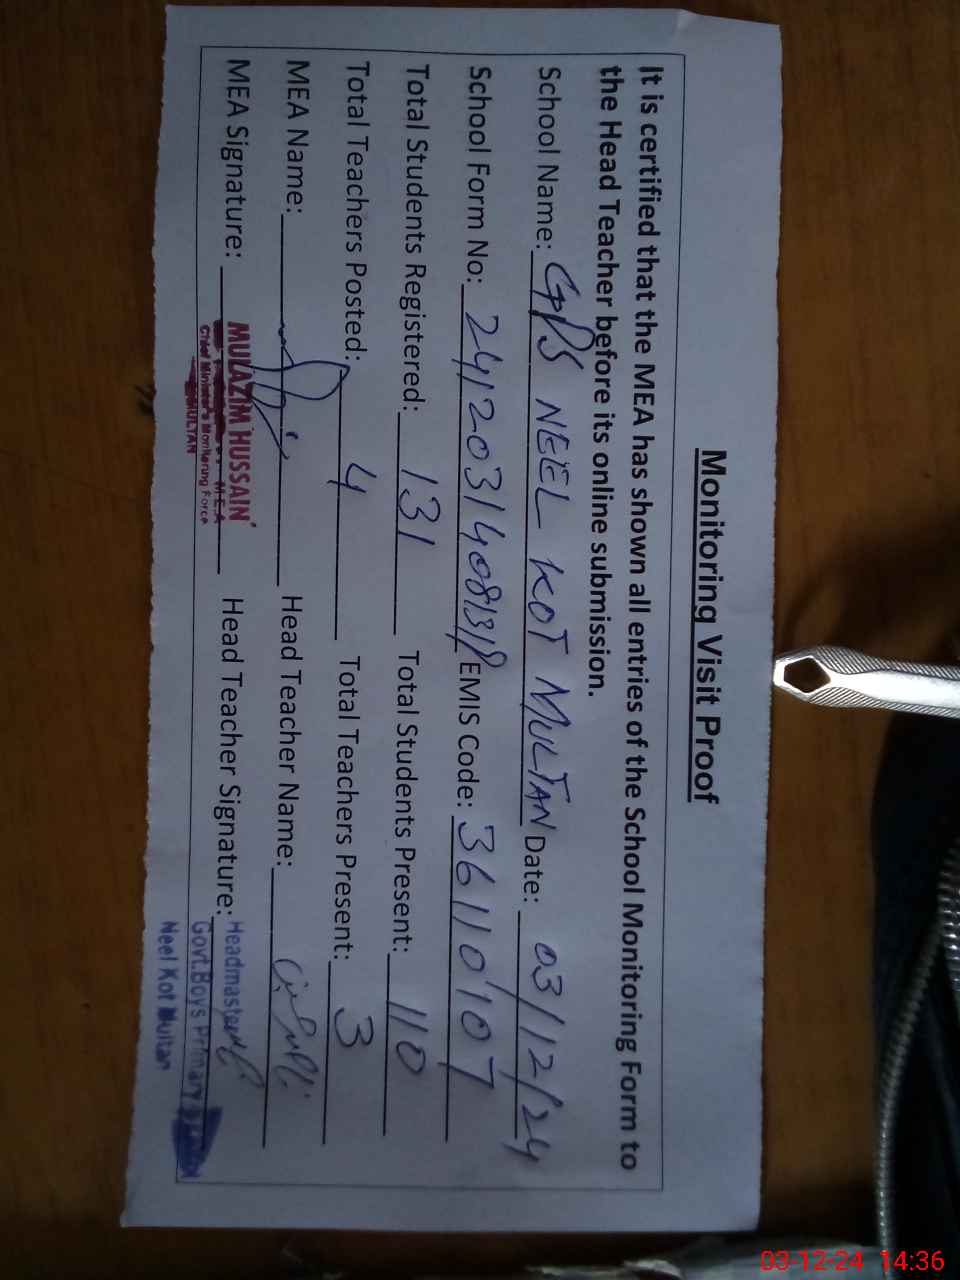 Monitoring Visit Proof
It is certified that the MEA has shown all entries of the School Monitoring Form to
the Head Teacher before its online submission.
School Name: GPS NEEL KOT MULTAN Date: 03/12/24
School Form No: EMIS Code: 36110107
Total Students Registered: 131 Total Students Present: 110
Total Teachers Posted: 4 Total Teachers Present: 3
MEA Name: Head Teacher Name:
MEA Signature: Head Teacher Signature:
MULAZIM HUSSAIN
M.E.A
Chief Minister's Monitoring Force
MULTAN
Headmaster
Govt.Boys Primary
Neel Kot Multan
03-12-24 14:36